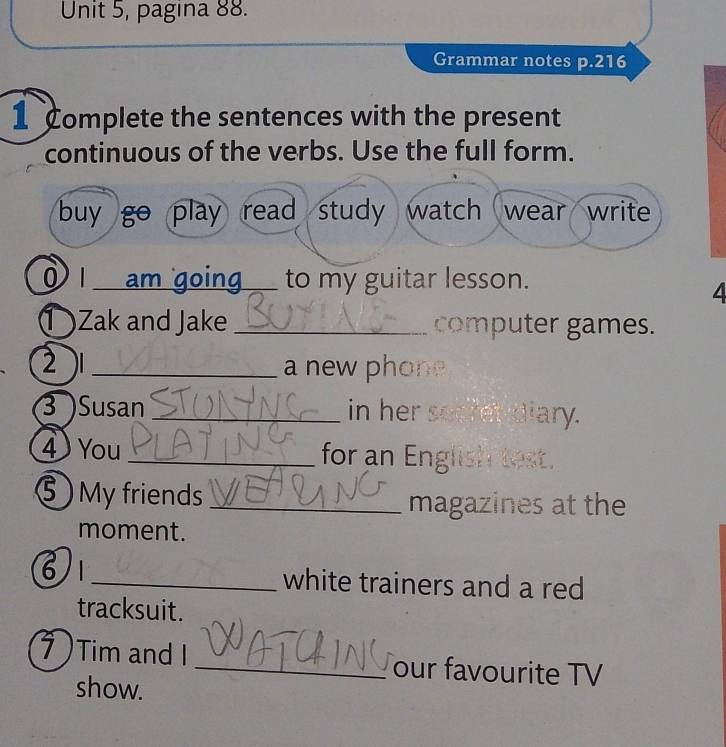 Unit 5, pagina 88.
Grammar notes p.216
1 Complete the sentences with the present
continuous of the verbs. Use the full form.
buy go play read study watch wear write
0 I am going to my guitar lesson.
1 Zak and Jake BUYING computer games.
2 I a new phone.
3 Susan STUDYNG in her secret diary.
4 You PLAYING for an English test.
5 My friends WEARING magazines at the
moment.
6 I white trainers and a red
tracksuit.
7 Tim and I WATCHING our favourite TV
show.
4